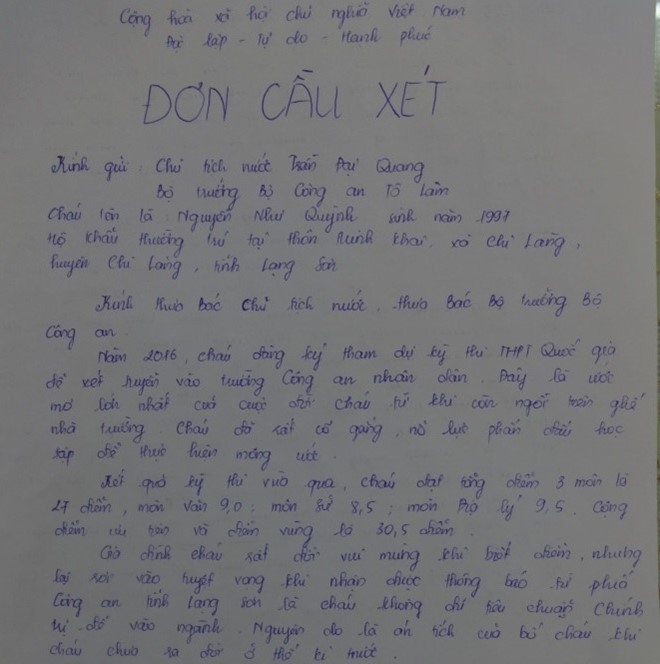 Cộng hoà xã hội chủ nghĩa Việt Nam
Độc lập - Tự do - Hạnh phúc
ĐƠN CẦU XÉT
Kính gửi : Chủ tịch nước Trần Đại Quang
Bộ trưởng Bộ Công an Tô Lâm
Cháu tên là Nguyễn Như Quỳnh sinh năm 1997
Hộ khẩu thường trú tại thôn Minh Khai, xã Chi Lăng,
huyện Chi Lăng, tỉnh Lạng Sơn
Kính thưa Bác Chủ tịch nước, thưa Bác Bộ trưởng Bộ
Công an.
Năm 2016, cháu đăng ký tham dự kỳ thi THPT Quốc gia
để xét tuyển vào trường Công an nhân dân. Đây là ước
mơ lớn nhất của cuộc đời cháu từ khi còn ngồi trên ghế
nhà trường. Cháu đã rất cố gắng, nỗ lực phấn đấu học
tập để thực hiện mong ước.
Kết quả kỳ thi vừa qua, cháu đạt tổng điểm 3 môn là
27 điểm, môn văn 9,0 ; môn sử 8,5 ; môn Địa lý 9,5. Cộng
điểm ưu tiên và điểm vùng là 30,5 điểm.
Gia đình cháu rất đỗi vui mừng khi biết điểm, nhưng
lại rơi vào tuyệt vọng khi nhận được thông báo từ phía
Công an tỉnh Lạng Sơn là cháu không đủ tiêu chuẩn Chính
trị để vào ngành. Nguyên do là án tích của bố cháu khi
cháu chưa ra đời ở thế kỉ trước.